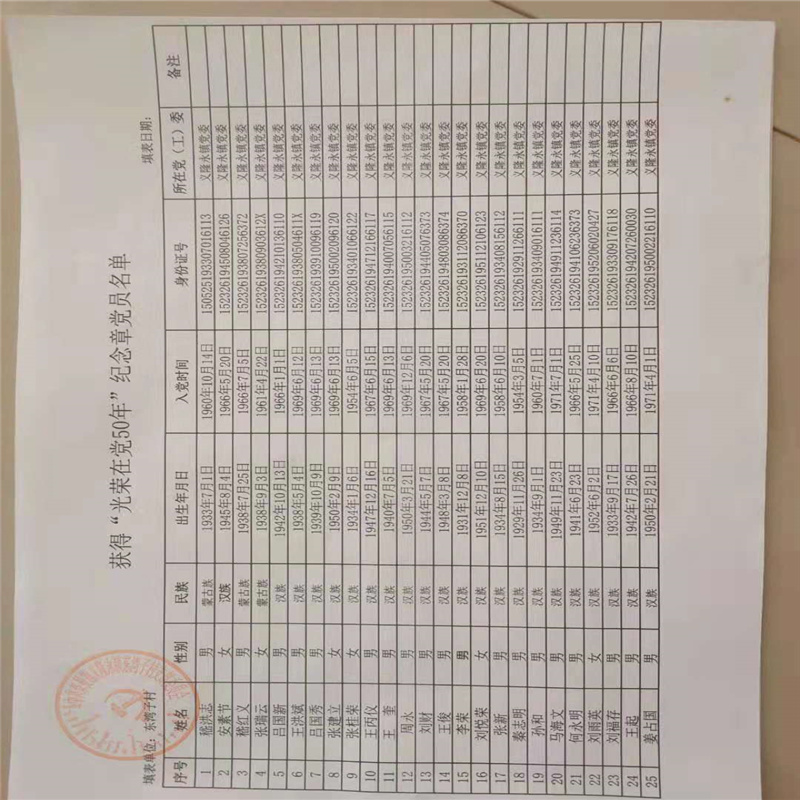 获得“光荣在党50年”纪念章党员名单
填表单位：东湾子村 填表日期：
序号 姓名 性别 民族 出生年月日 入党时间 身份证号 所在党（工）委 备注
1 嵇洪志 男 蒙古族 1933年7月1日 1960年10月14日 150525193307016113 义隆永镇党委
2 安素节 女 汉族 1945年8月4日 1966年5月20日 152326194508046126 义隆永镇党委
3 嵇红义 男 蒙古族 1938年7月25日 1966年7月5日 152326193807256372 义隆永镇党委
4 张瑞云 女 蒙古族 1938年9月3日 1961年4月22日 15232619380903612X 义隆永镇党委
5 吕国新 男 汉族 1942年10月13日 1966年1月1日 152326194210136110 义隆永镇党委
6 王洪斌 男 汉族 1938年5月4日 1969年6月12日 15232619380504611X 义隆永镇党委
7 吕国秀 男 汉族 1939年10月9日 1969年6月13日 152326193910096119 义隆永镇党委
8 张建立 女 汉族 1950年2月9日 1969年6月13日 152326195002096120 义隆永镇党委
9 张桂荣 女 汉族 1934年1月6日 1954年6月5日 152326193401066122 义隆永镇党委
10 王丙仪 男 汉族 1947年12月16日 1967年6月15日 152326194712166117 义隆永镇党委
11 王 奎 男 汉族 1940年7月5日 1969年6月13日 152326194007056115 义隆永镇党委
12 周水 男 汉族 1950年3月21日 1969年12月6日 152326195003216112 义隆永镇党委
13 刘财 男 汉族 1944年5月7日 1967年5月20日 152326194405076373 义隆永镇党委
14 王俊 男 汉族 1948年3月8日 1967年5月20日 152326194803086374 义隆永镇党委
15 李荣 男 汉族 1931年12月8日 1958年1月28日 152326193112086370 义隆永镇党委
16 刘悦荣 女 汉族 1951年12月10日 1969年6月20日 152326195112106123 义隆永镇党委
17 张新 男 汉族 1934年8月15日 1958年6月10日 152326193408156112 义隆永镇党委
18 秦志明 男 汉族 1929年11月26日 1954年3月5日 152326192911266111 义隆永镇党委
19 孙和 男 汉族 1934年9月1日 1960年7月1日 152326193409016111 义隆永镇党委
20 马海文 男 汉族 1949年11月23日 1971年7月1日 152326194911236114 义隆永镇党委
21 何永明 男 汉族 1941年6月23日 1966年5月25日 152326194106236373 义隆永镇党委
22 刘雨英 女 汉族 1952年6月2日 1971年4月10日 152326195206020427 义隆永镇党委
23 刘福存 男 汉族 1933年9月17日 1966年6月6日 152326193309176118 义隆永镇党委
24 王起 男 汉族 1942年7月26日 1966年8月10日 152326194207260030 义隆永镇党委
25 姜占国 男 汉族 1950年2月21日 1971年4月1日 152326195002216110 义隆永镇党委